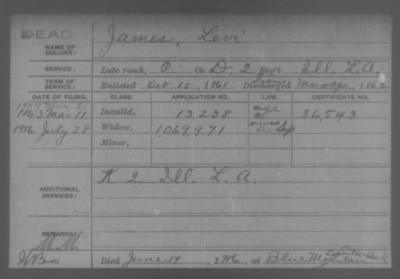 DEAD
NAME OF SOLDIER: James, Levi
SERVICE: Late rank, Co. D, 2 Reg't Ill. L.A.
TERM OF SERVICE: Enlisted Oct 15, 1861 Discharged
DATE OF FILING. CLASS. APPLICATION NO. LAW. CERTIFICATE NO.
1863 Mar 11 Invalid, 13.238 36,543
1916 July 28 Widow, 1.069.971
Minor,
ADDITIONAL SERVICES: K 2 Ill. L.A.
REMARKS:
Died June 19, 1916, at Blue Mountain Ark